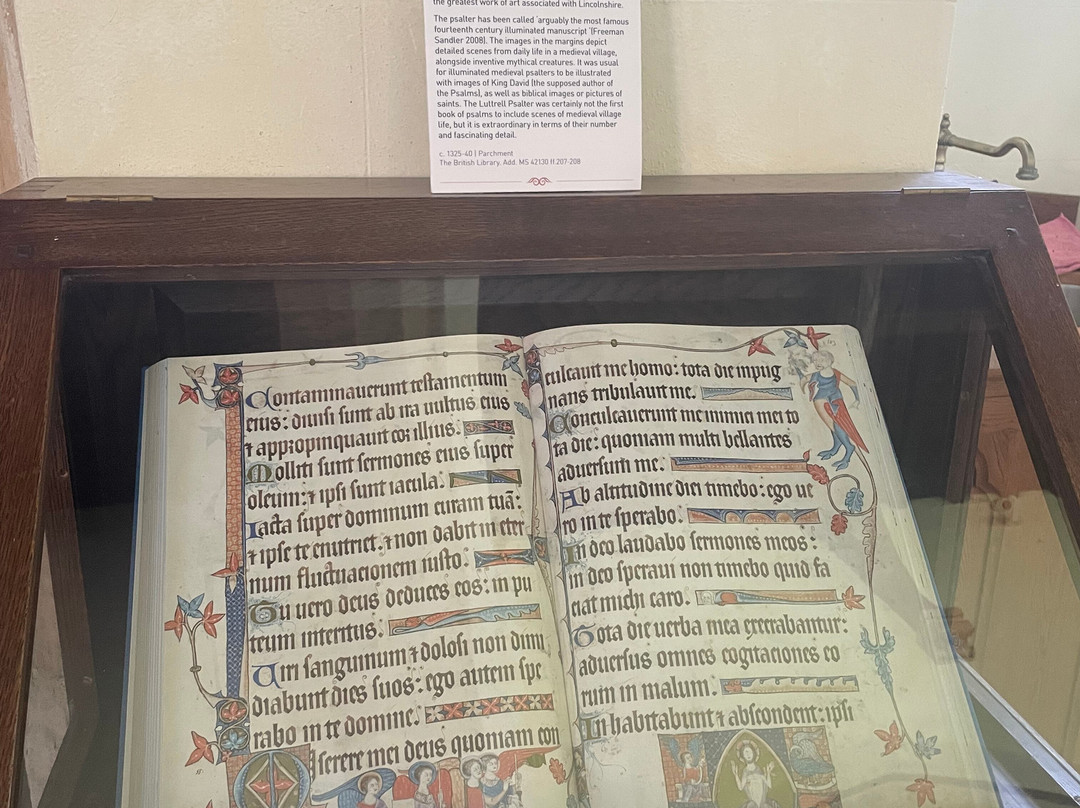 the greatest work of art associated with Lincolnshire.
The psalter has been called 'arguably the most famous
fourteenth century illuminated manuscript '(Freeman
Sandler 2008). The images in the margins depict
detailed scenes from daily life in a medieval village,
alongside inventive mythical creatures. It was usual
for illuminated medieval psalters to be illustrated
with images of King David (the supposed author of
the Psalms), as well as biblical images or pictures of
saints. The Luttrell Psalter was certainly not the first
book of psalms to include scenes of medieval village
life, but it is extraordinary in terms of their number
and fascinating detail.
c. 1325-40 | Parchment
The British Library. Add. MS 42130 ff.207-208
Contaminauerunt testamentum
eius: diuisi sunt ab ira uultus eius
⁊ appropinquauit cor illius.
Molliti sunt sermones eius super
oleum: ⁊ ipsi sunt iacula.
Iacta super dominum curam tuā:
⁊ ipse te enutriet. ⁊ non dabit in eter
num fluctuacionem iusto.
Tu uero deus deduces eos: in pu
teum interitus.
Uiri sanguinum ⁊ dolosi non dimi
diabunt dies suos: ego autem spe
rabo in te domine.
Miserere mei deus quoniam con
culcauit me homo: tota die inpug
nans tribulauit me.
Conculcauerunt me inimici mei to
ta die: quoniam multi bellantes
aduersum me.
Ab altitudine diei timebo: ego ue
ro in te sperabo.
In deo laudabo sermones meos:
in deo speraui non timebo quid fa
ciat michi caro.
Tota die uerba mea execrabantur:
aduersus omnes cogitaciones eo
rum in malum.
Inhabitabunt ⁊ abscondent: ipsi